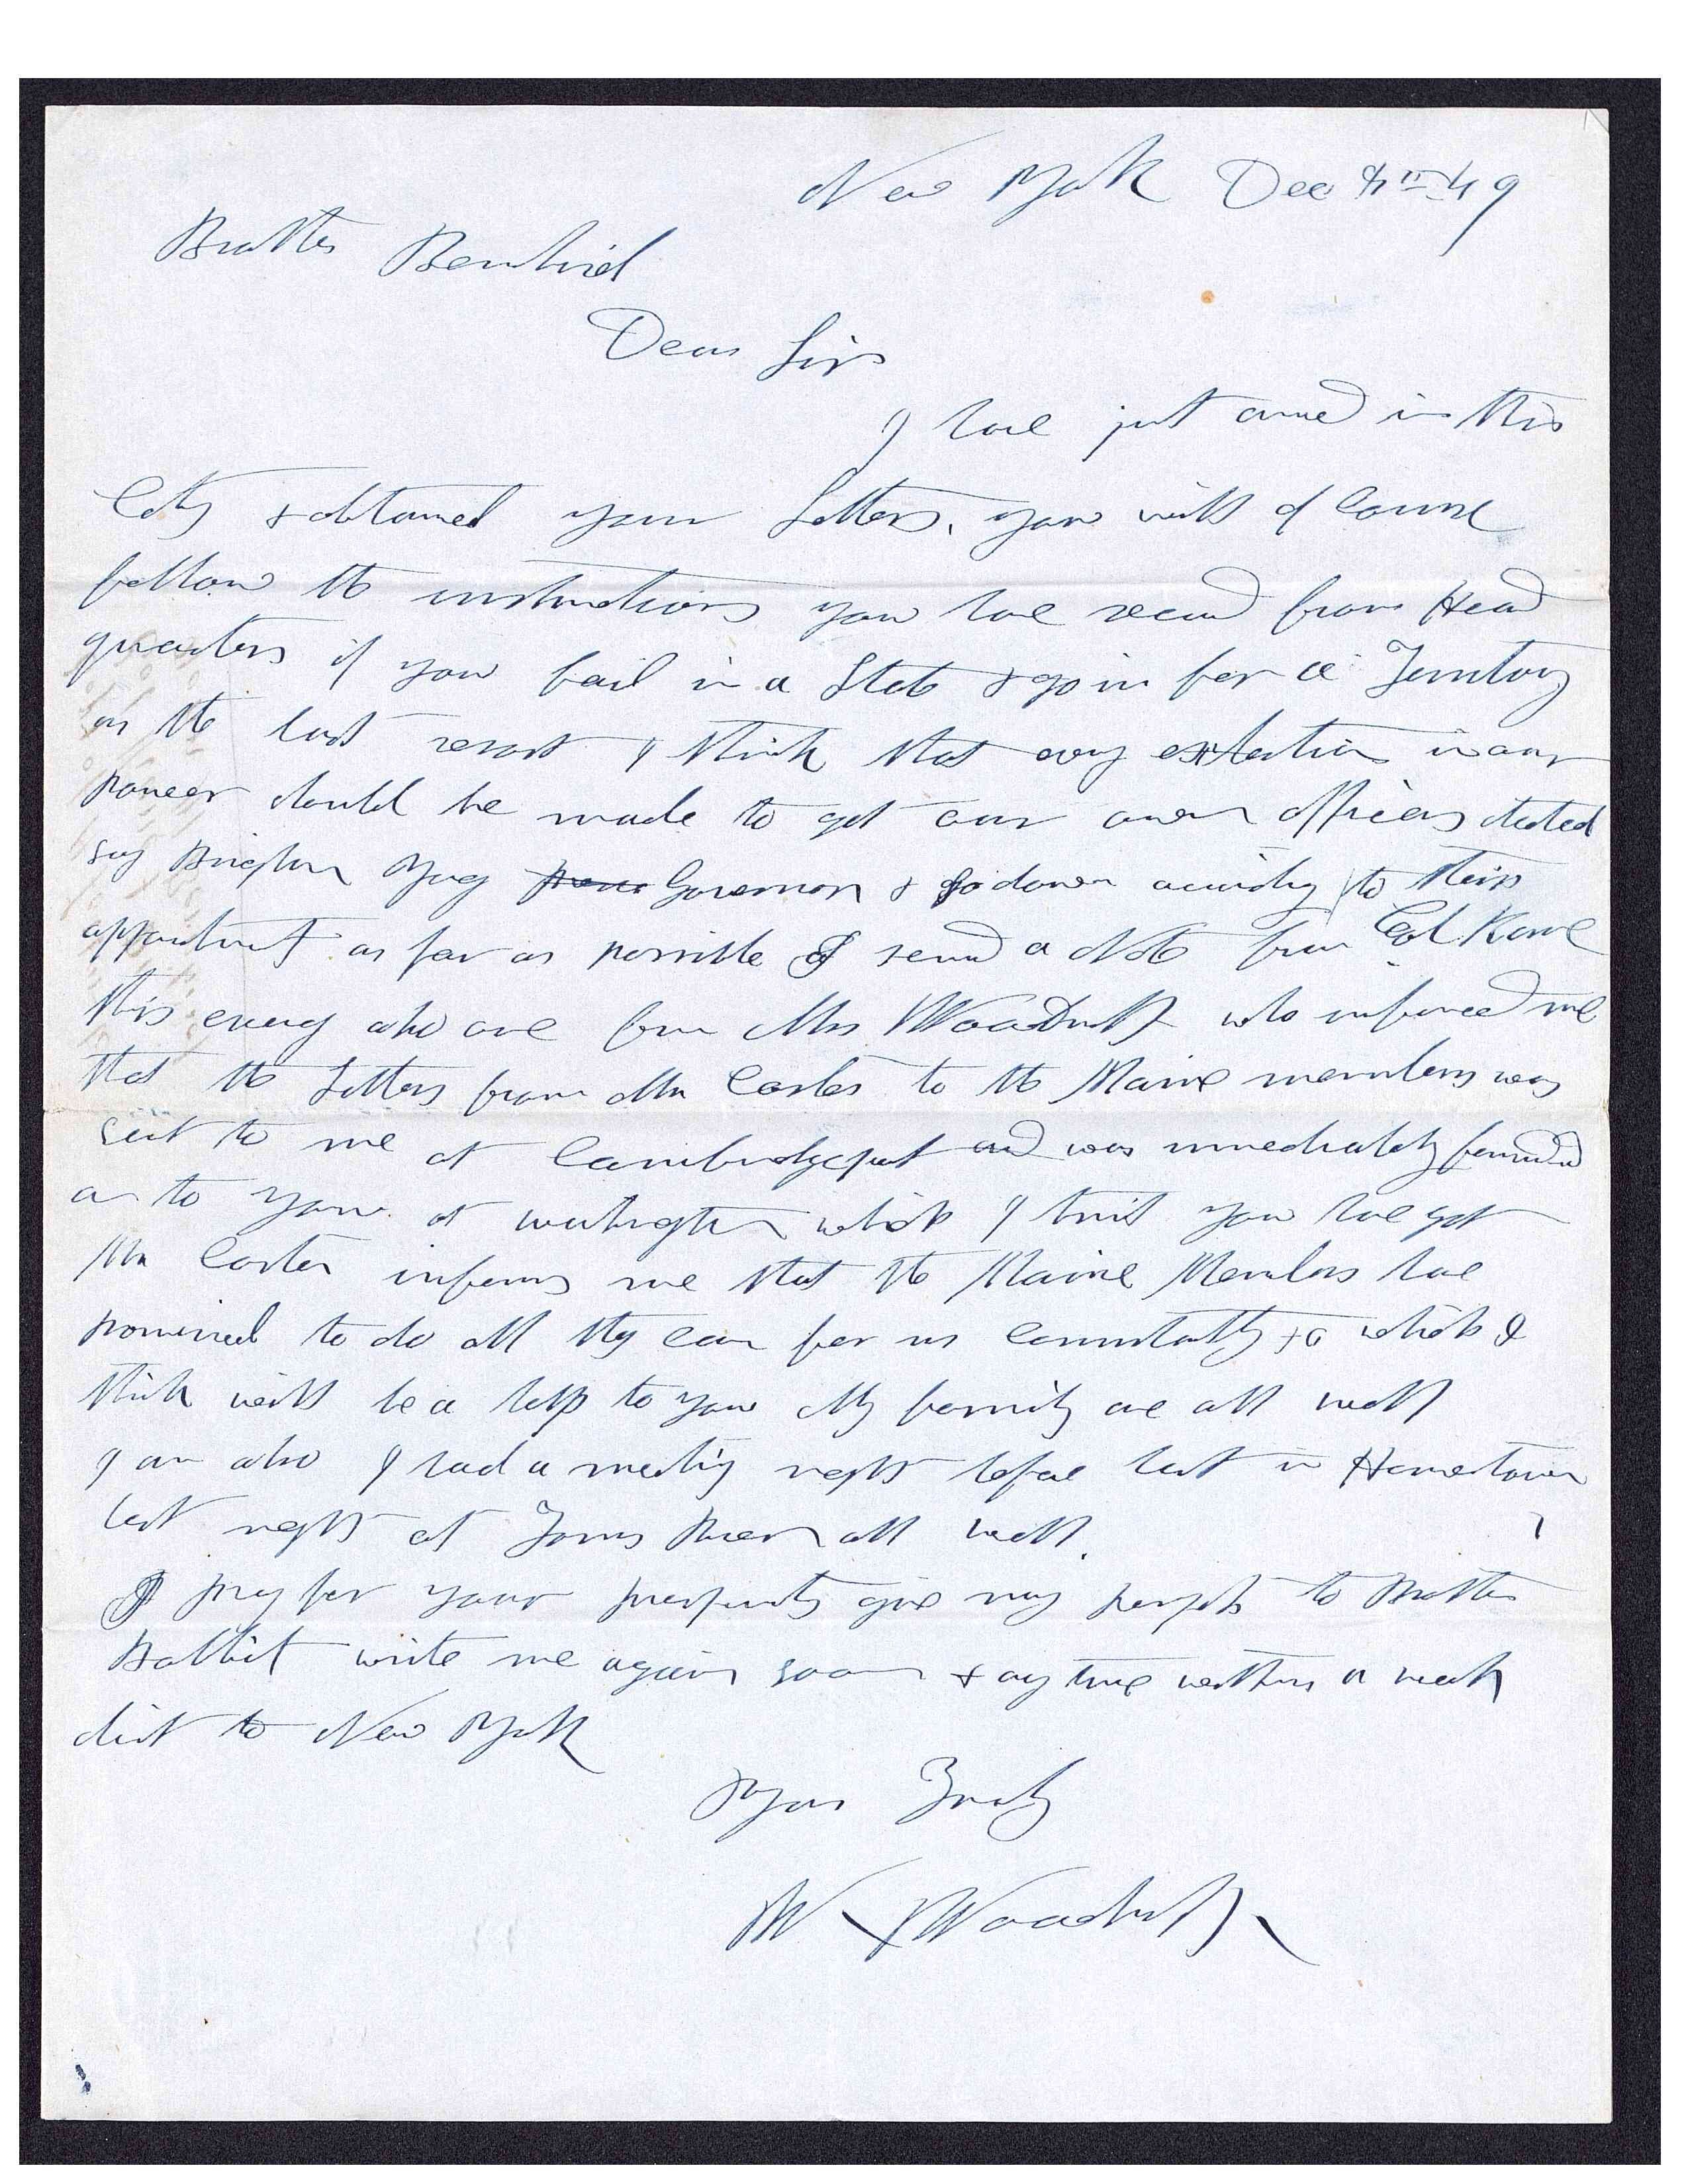 New York Dec 4th 49
Brother Bernhisel
Dear Sir
I have just arrived in this
City & obtained your Letters. you will of Course
follow the instructions you have received from Head
quarters if you fail in a State & go in for a Territory
as the last resort I think that evry exhertion in our
power should be made to get our own officers elected
say Brigham Young Governor & so down according to their
appointment as far as possible I received a Note from Col. Kane
this evening also one from Mrs Woodruff who informed me
that the Letters from Mr Carter to the Maine members was
sent to me at Cambridgeport and was immediately forwarded
on to you at washington which I trust you have got
Mr Carter informs me that the Maine Members have
promised to do all they can for us consistantly &c which I
think will be a help to you My family are all well
I am also I had a meeting night before last in Hornerstown
last night at Toms River all well.
I pray for your prosperity give my respects to Brother
Babbit write me again soon & any time within a week
direct to New York
Yours Truly
W. Woodruff